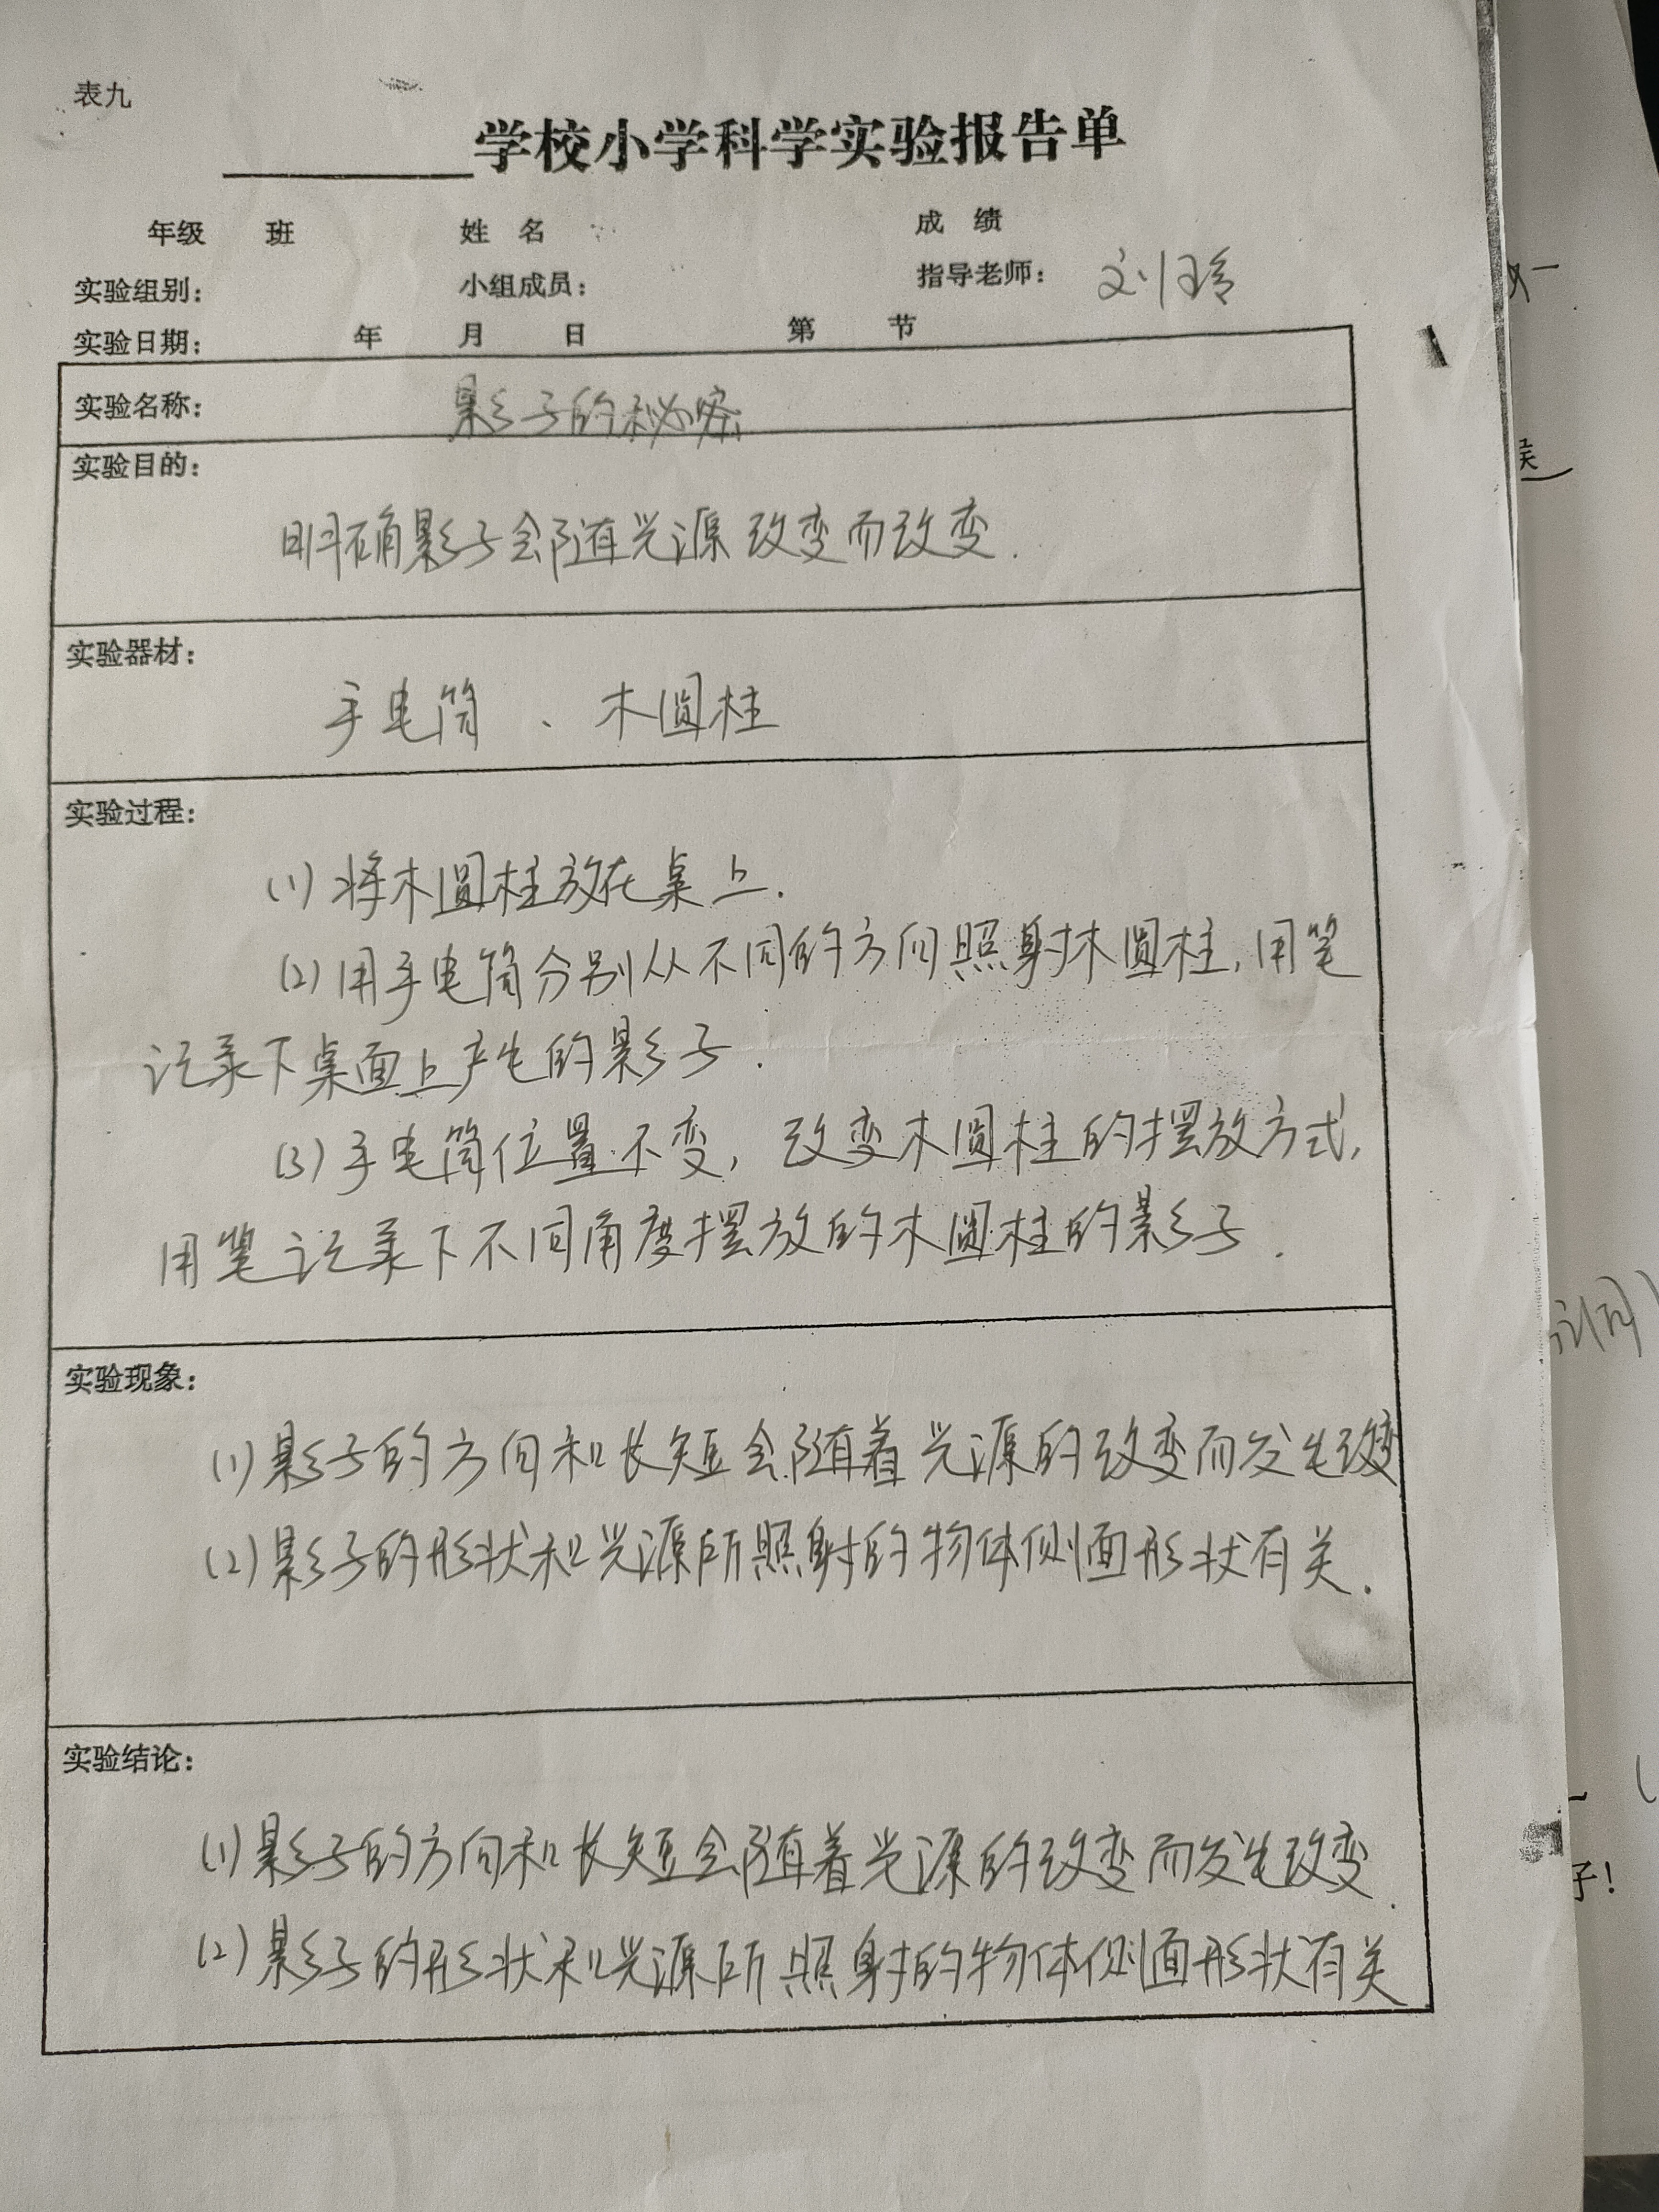 表九
学校小学科学实验报告单
年级 班 姓 名 成 绩
实验组别： 小组成员： 指导老师： 刘玲
实验日期： 年 月 日 第 节
实验名称： 影子的秘密
实验目的：
明确影子会随光源改变而改变.
实验器材：
手电筒 、 木圆柱
实验过程：
(1) 将木圆柱放在桌上.
(2) 用手电筒分别从不同的方向照射木圆柱,用笔
记录下桌面上产生的影子.
(3) 手电筒位置不变, 改变木圆柱的摆放方式,
用笔记录下不同角度摆放的木圆柱的影子.
实验现象：
(1) 影子的方向和长短会随着光源的改变而发生改变
(2) 影子的形状和光源所照射的物体侧面形状有关.
实验结论：
(1) 影子的方向和长短会随着光源的改变而发生改变.
(2) 影子的形状和光源所照射的物体侧面形状有关
子!